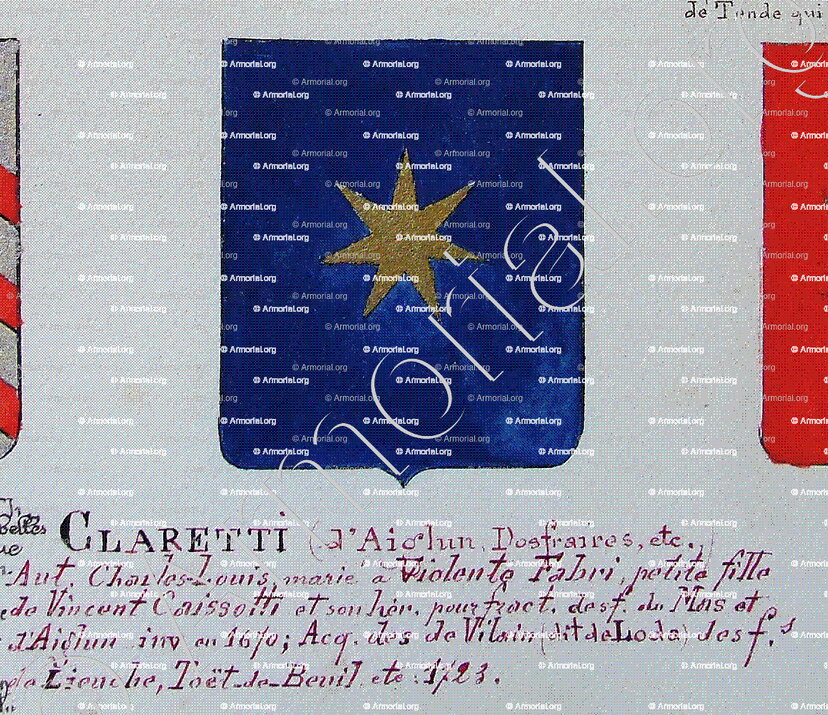 de Tende qui
CLARETTI (d'Aiglun, Dosfraires, etc.,)
Aut. Charles-Louis, marié à Violente Fabri, petite fille
de Vincent Caissotti et son hér. pour fract. des f. du Mas et
d'Aiglun inv en 1670; Acq. des de Vilain (dit de Loda) des f.s
de Lieuche, Toët-de-Beuil etc. 1723.
© Armorial.org